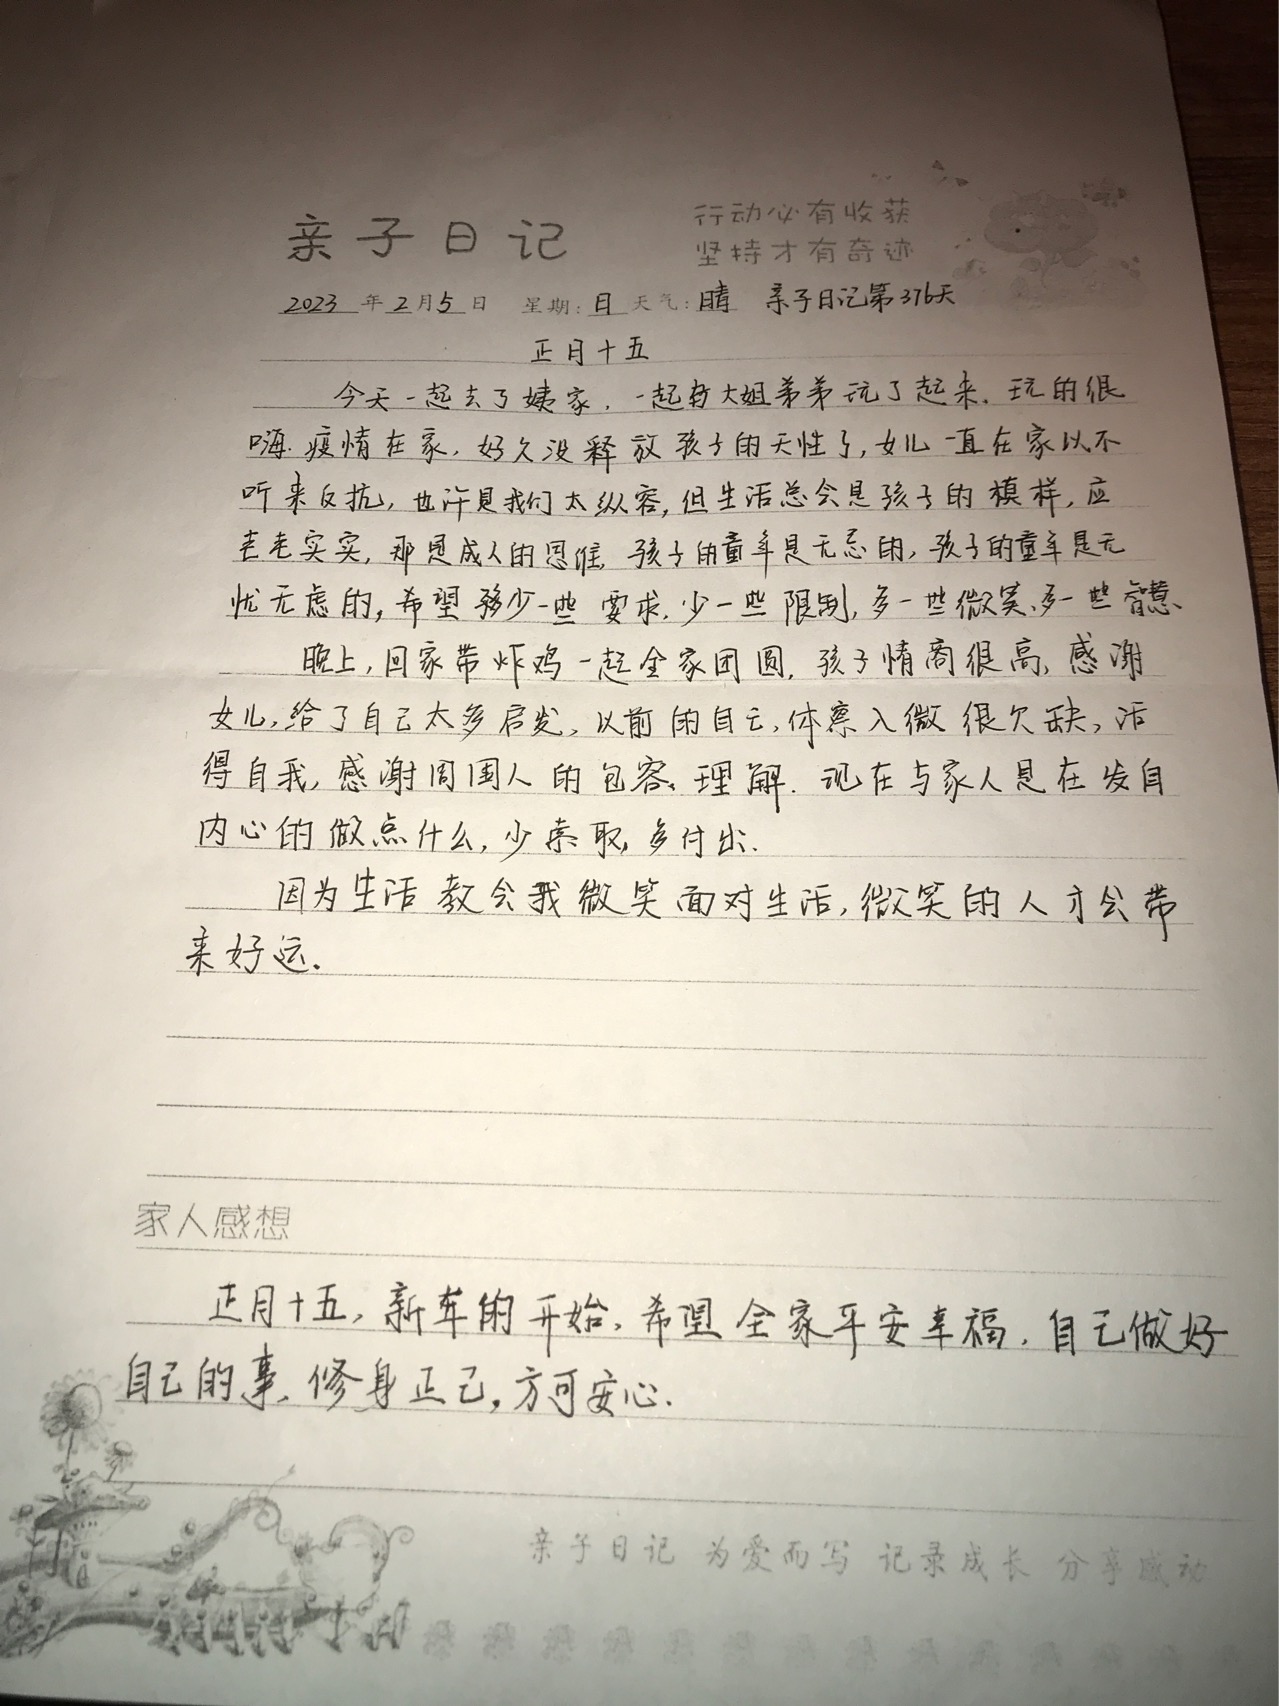 亲子日记
行动必有收获
坚持才有奇迹
2023年2月5日 星期:日 天气:晴 亲子日记第376天
正月十五
今天一起去了姨家,一起与大姐弟弟玩了起来.玩的很
嗨.疫情在家,好久没释放孩子的天性了,女儿一直在家以不
听来反抗,也许是我们太纵容,但生活总会是孩子的模样,应
老老实实,那是成人的思维,孩子的童年是无忌的,孩子的童年是无
忧无虑的,希望 少一些要求.少一些限制,多一些微笑、多一些智慧、
晚上,回家带炸鸡一起全家团圆.孩子情商很高,感谢
女儿,给了自己太多启发,以前的自己,体察入微很欠缺,活
得自我,感谢周围人的包容、理解.现在与家人是在发自
内心的做点什么,少索取,多付出.
因为生活教会我微笑面对生活,微笑的人才会带
来好运.
家人感想
正月十五,新年的开始,希望全家平安幸福.自己做好
自己的事、修身正己,方可安心.
亲子日记 为爱而写 记录成长 分享感动